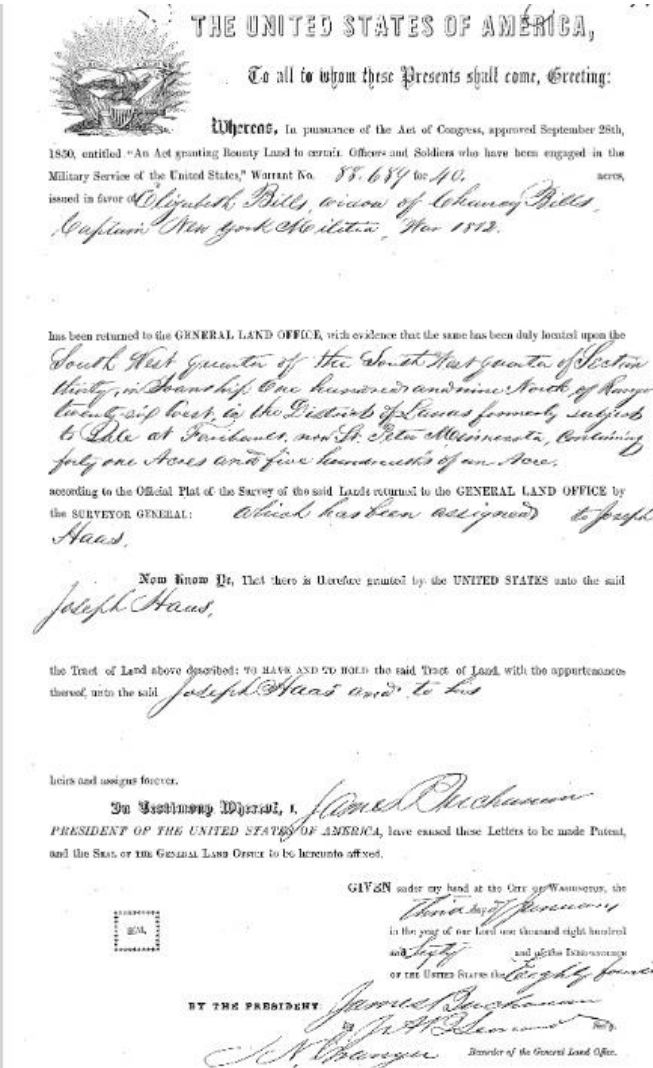 THE UNITED STATES OF AMERICA,
To all to whom these Presents shall come, Greeting:
Whereas, In pursuance of the Act of Congress, approved September 28th,
1850, entitled "An Act granting Bounty Land to certain Officers and Soldiers who have been engaged in the
Military Service of the United States," Warrant No. 88.689 for 40. acres,
issued in favor of Elizabeth Bills, widow of Chancy Bills,
Captain New York Militia, War 1812.
has been returned to the GENERAL LAND OFFICE, with evidence that the same has been duly located upon the
South West quarter of the South West quarter of Section
thirty, in Township One hundred and nine North, of Range
twenty six West, in the District of Lands formerly subject
to Sale at Faribault, now St. Peter Minnesota, Containing
forty one Acres and five hundredths of an Acre.
according to the Official Plat of the Survey of the said Lands returned to the GENERAL LAND OFFICE by
the SURVEYOR GENERAL: which has been assigned to Joseph
Haas,
Now Know Ye, That there is therefore granted by the UNITED STATES unto the said
Joseph Haas,
the Tract of Land above described: TO HAVE AND TO HOLD the said Tract of Land, with the appurtenances
thereof, unto the said Joseph Haas and to his
heirs and assigns forever.
In Testimony Whereof, I, James Buchanan
PRESIDENT OF THE UNITED STATES OF AMERICA, have caused these Letters to be made Patent,
and the SEAL OF THE GENERAL LAND OFFICE to be hereunto affixed.
GIVEN under my hand at the CITY OF WASHINGTON, the
third day of January
in the year of our Lord one thousand eight hundred
and Sixty and of the INDEPENDENCE
OF THE UNITED STATES the Eighty fourth
SEAL
BY THE PRESIDENT: James Buchanan
by Sec'y.
J. N. Granger Recorder of the General Land Office.